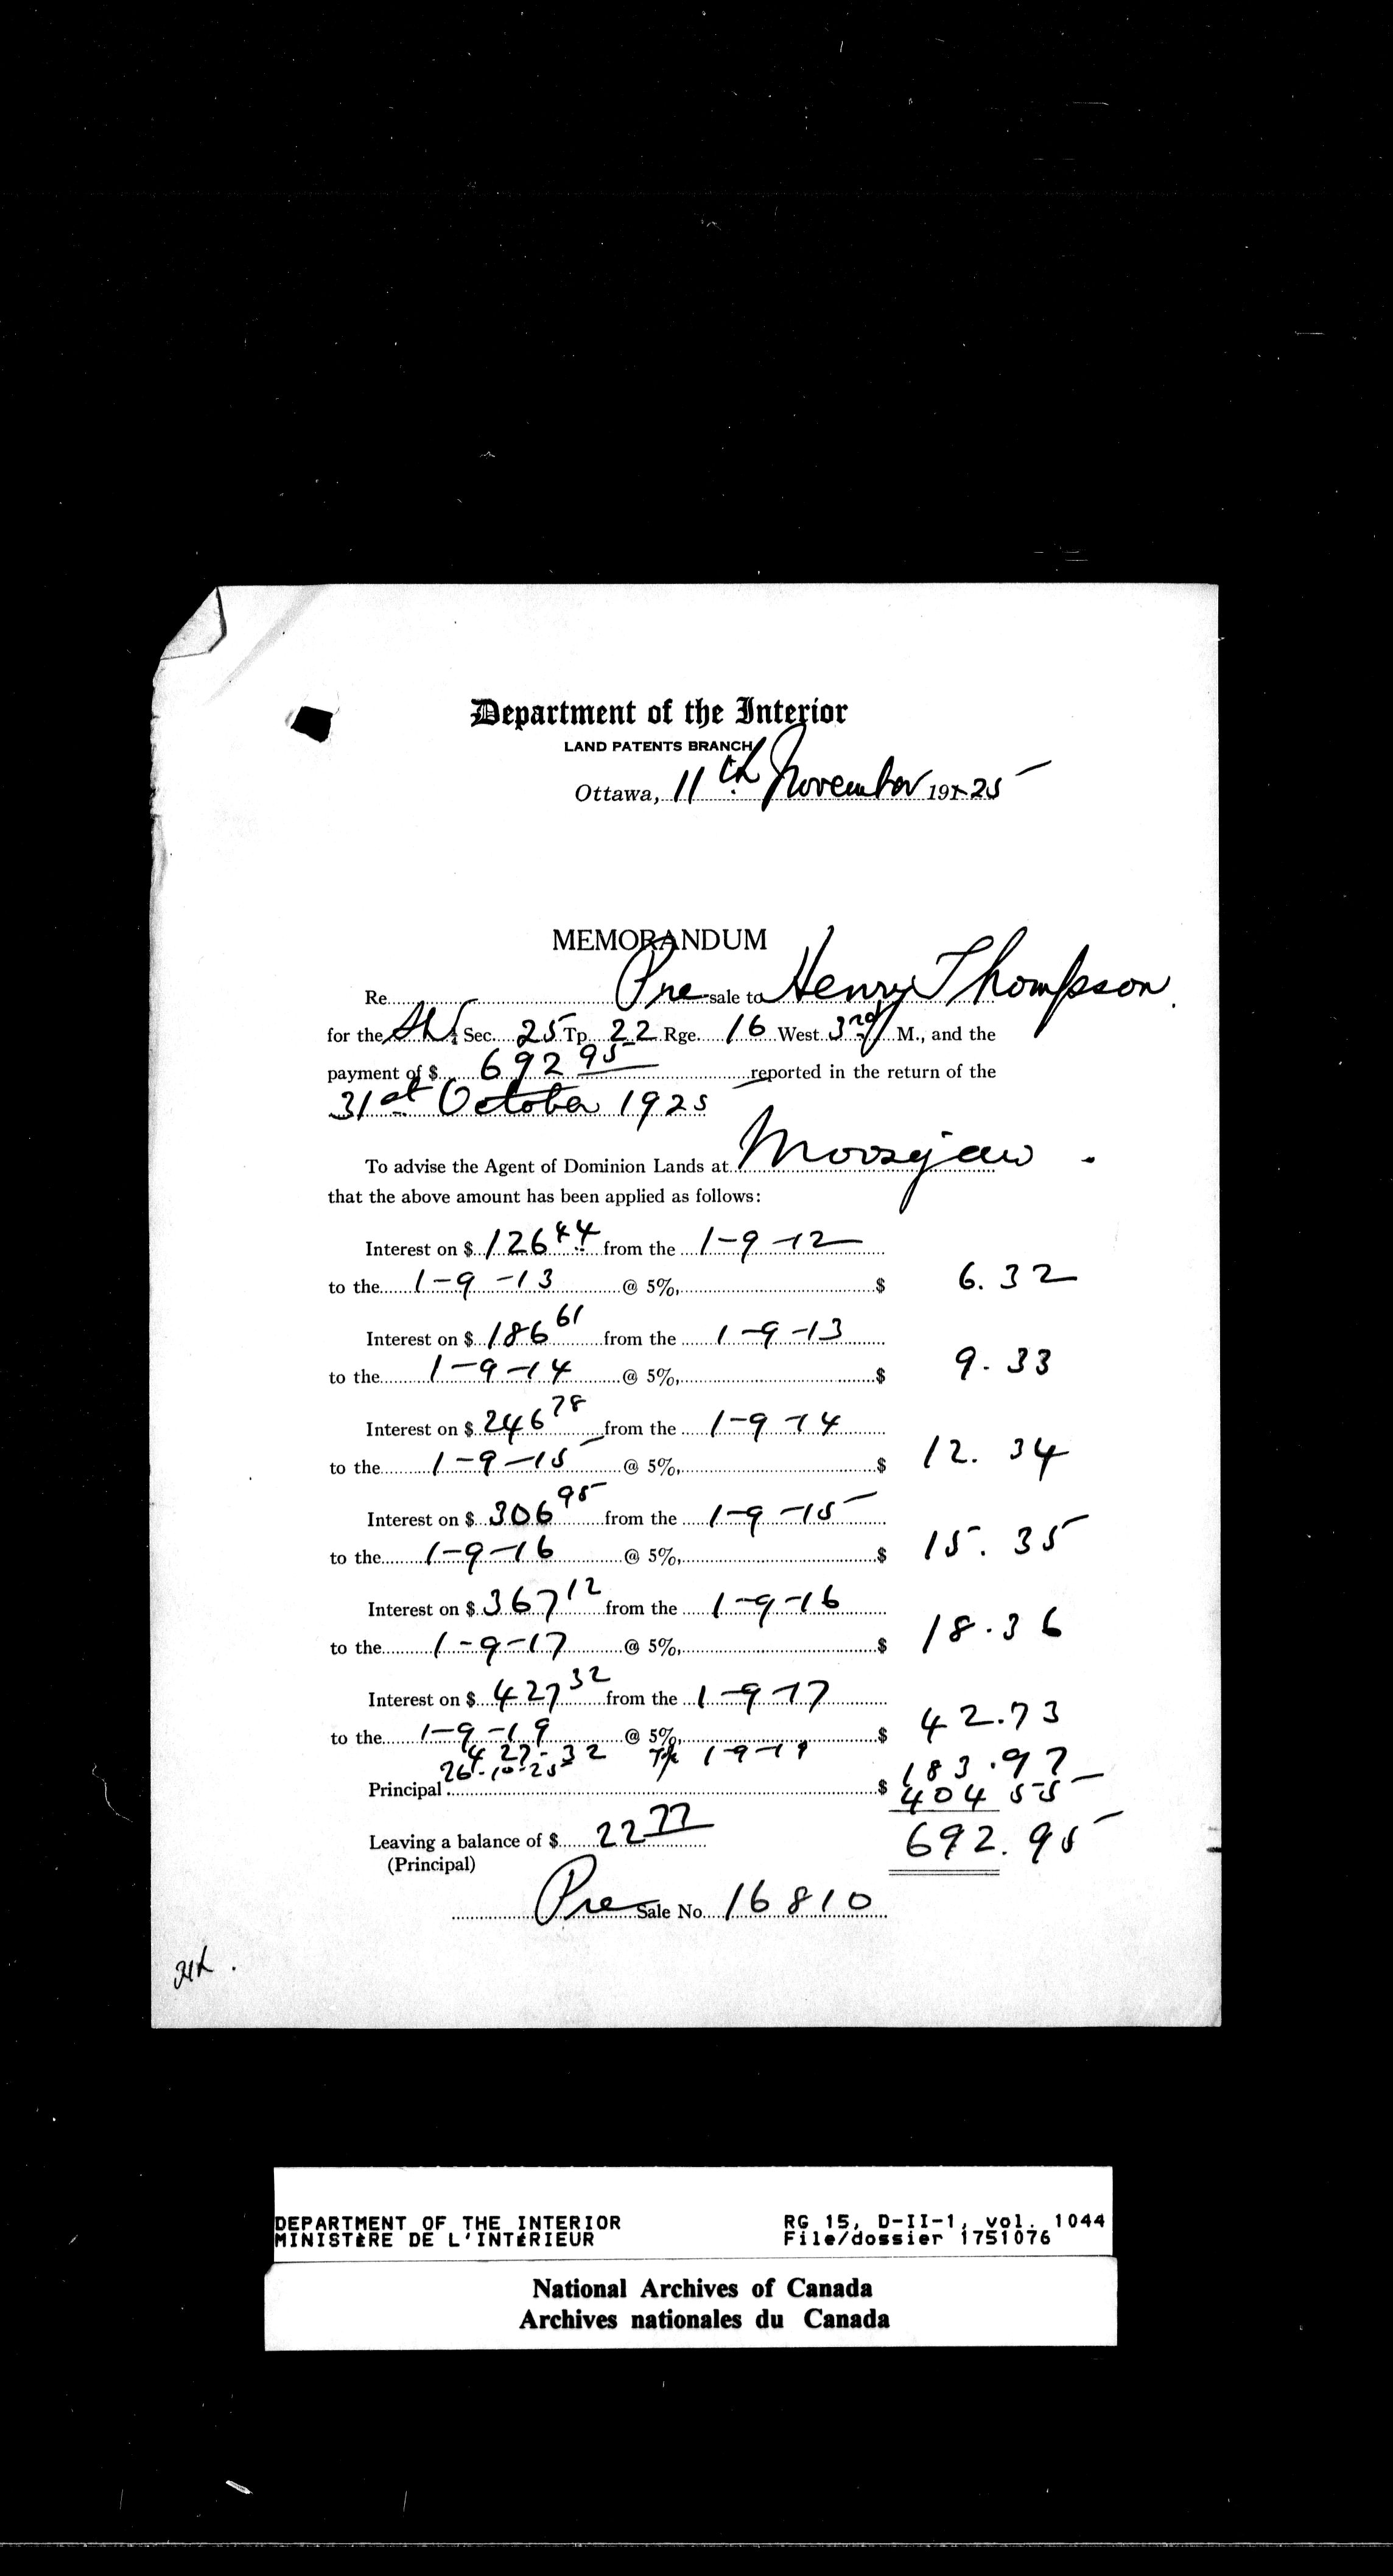 Department of the Interior
LAND PATENTS BRANCH
Ottawa, 11th November 191 25
MEMORANDUM
Re Pre-sale to Henry Thompson.
for the ¼ Sec. 25 Tp. 22 Rge. 16 West 3rd M., and the
payment of $ 692 95 reported in the return of the
31st October 1925
To advise the Agent of Dominion Lands at Moosejaw.
that the above amount has been applied as follows:
Interest on $ 126 44 from the 1-9-12
to the 1-9-13 @ 5%, $ 6.32
Interest on $ 186 61 from the 1-9-13
to the 1-9-14 @ 5%, $ 9.33
Interest on $ 246 78 from the 1-9-14
to the 1-9-15 @ 5%, $ 12.34
Interest on $ 306 95 from the 1-9-15
to the 1-9-16 @ 5%, $ 15.35
Interest on $ 367 12 from the 1-9-16
to the 1-9-17 @ 5%, $ 18.36
Interest on $ 427 32 from the 1-9-17
to the 1-9-19 @ 5%, $ 42.73
427-32 1-9-19 183.97
26-10-25
Principal $ 404 55
Leaving a balance of $ 22 77 692.95
(Principal)
Pre Sale No. 16810
DEPARTMENT OF THE INTERIOR RG 15, D-II-1, vol. 1044
MINISTÈRE DE L'INTÉRIEUR File/dossier 1751076
National Archives of Canada
Archives nationales du Canada